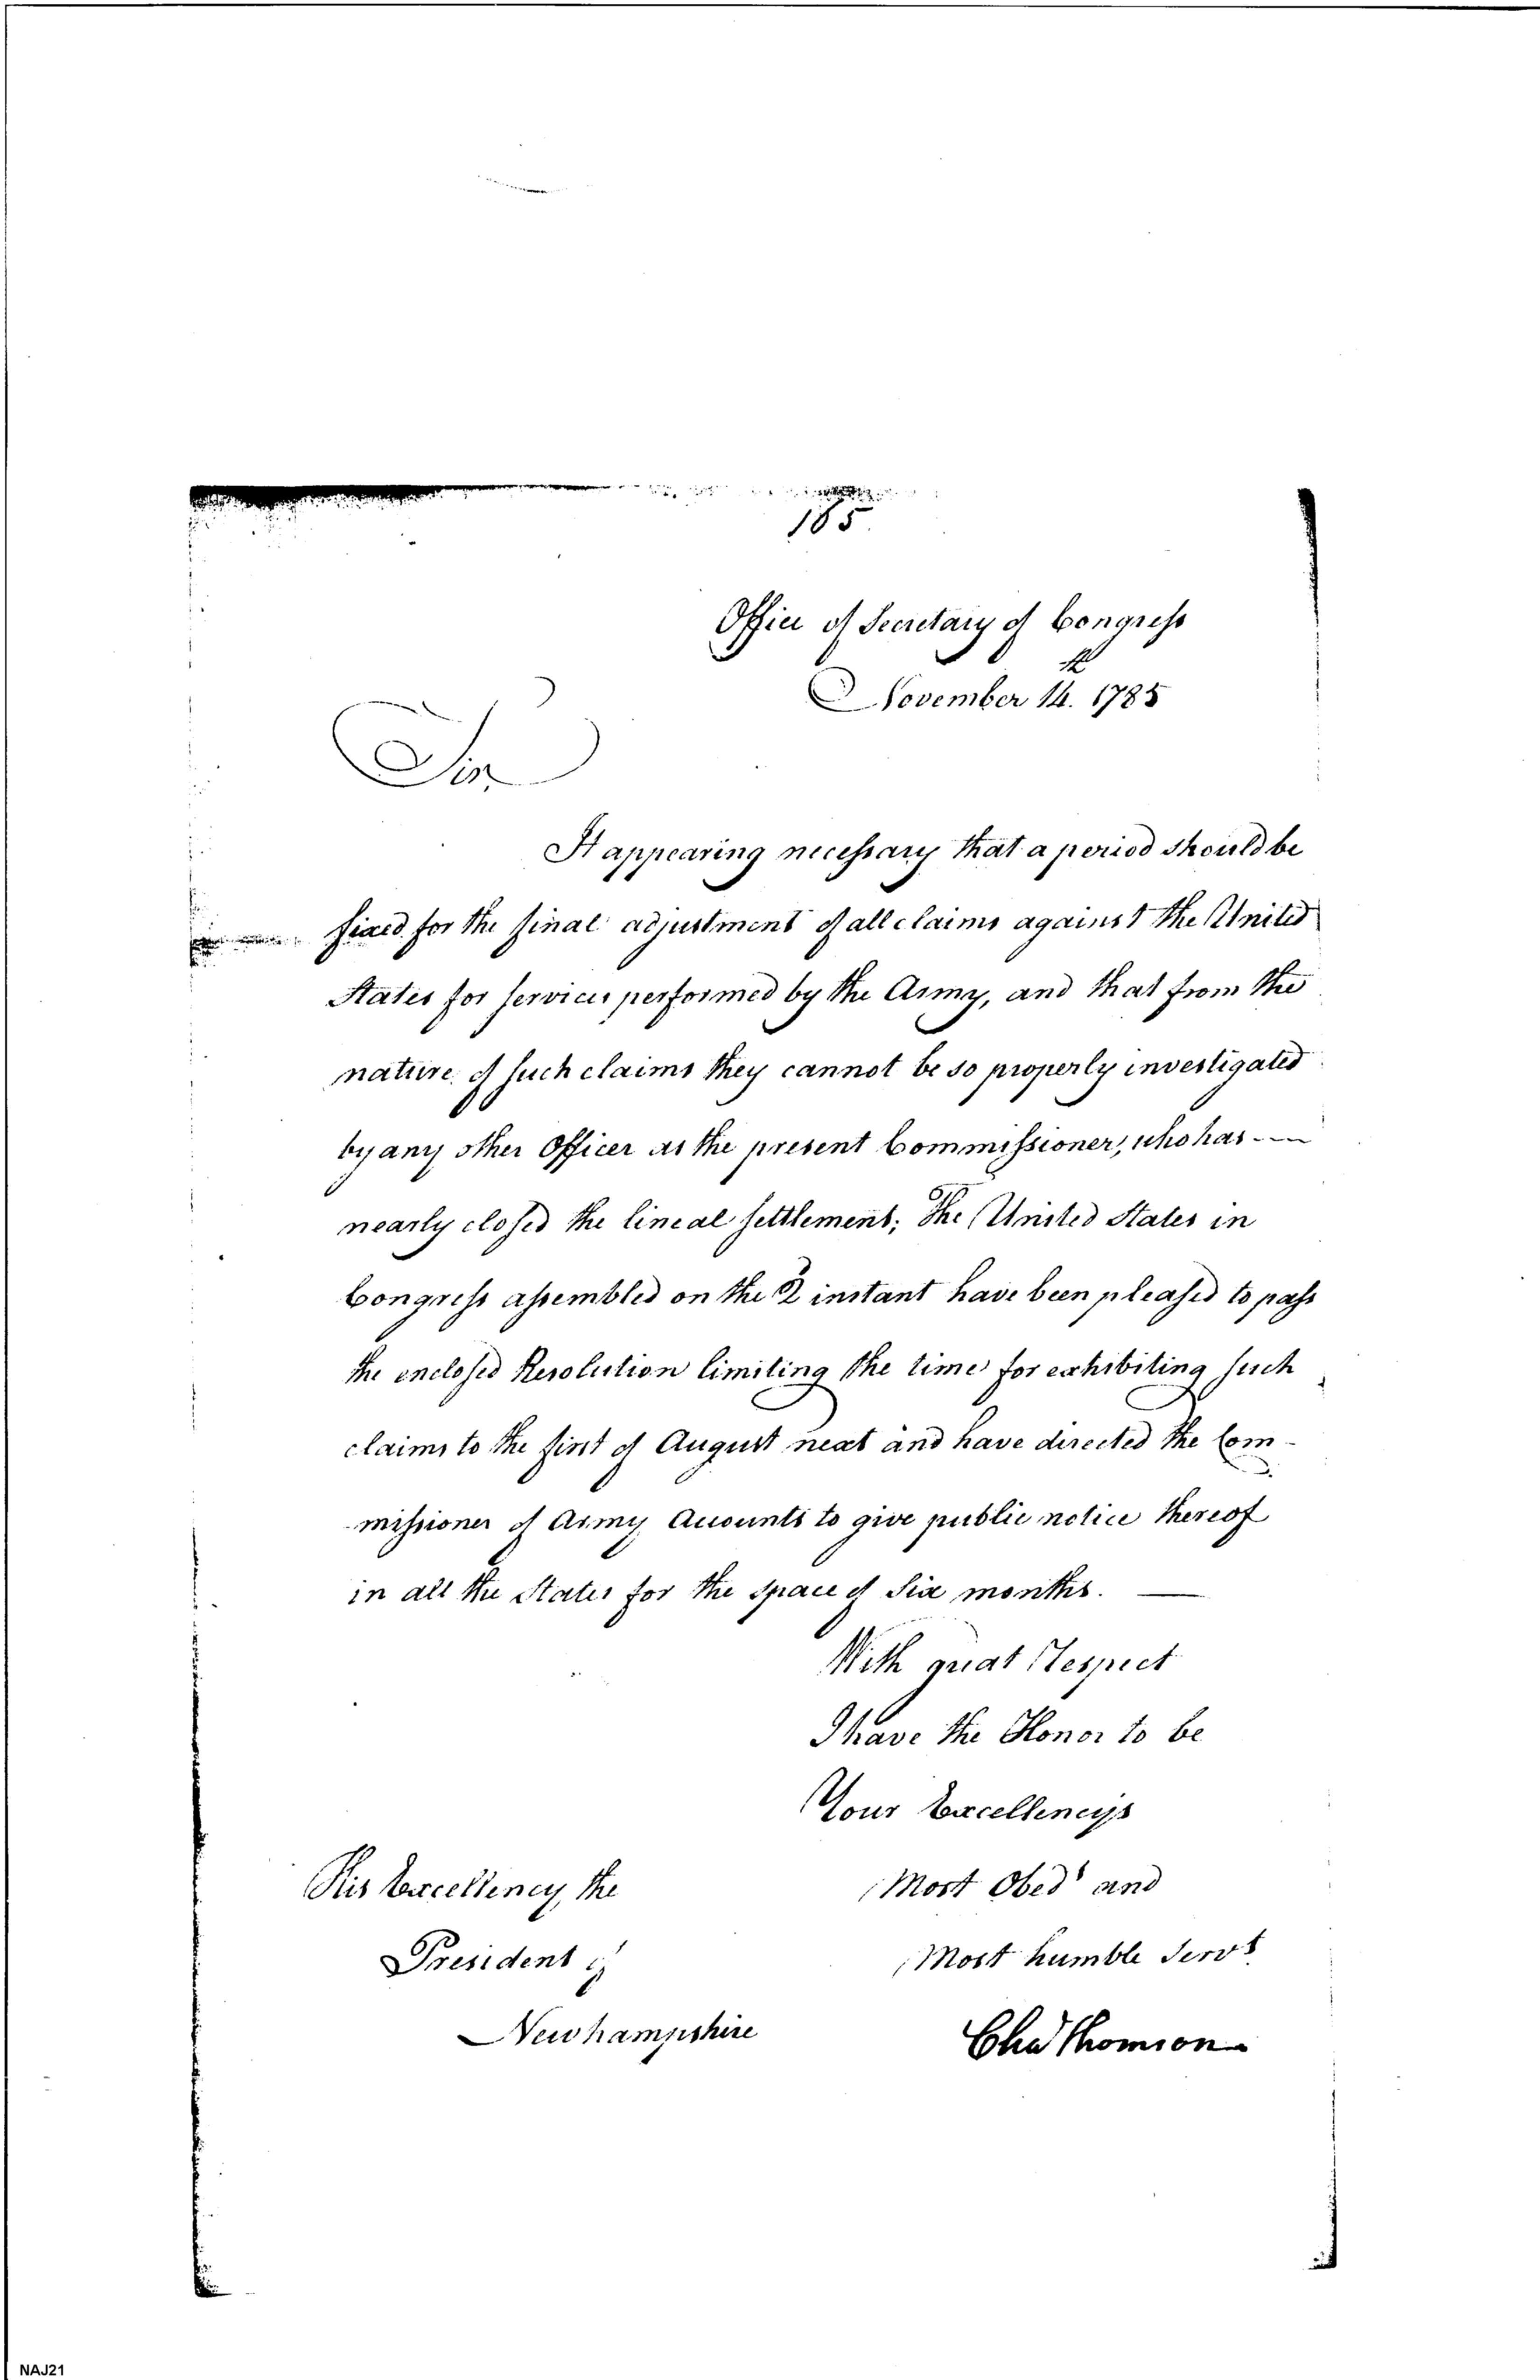 165
Office of Secretary of Congress
November 14th. 1785
Sir,
It appearing necessary that a period should be
fixed for the final adjustment of all claims against the United
States for services performed by the Army, and that from the
nature of such claims they cannot be so properly investigated
by any other Officer as the present Commissioner, who has
nearly closed the lineal settlement; The United States in
Congress assembled on the 2d instant have been pleased to pass
the enclosed Resolution limiting the time for exhibiting such
claims to the first of August next and have directed the Com-
-missioner of Army Accounts to give public notice thereof
in all the States for the space of Six months. —
With great Respect
I have the Honor to be
Your Excellencys
Most Obedt and
Most humble Servt
Chas Thomson
His Excellency, the
President of
Newhampshire
NAJ21